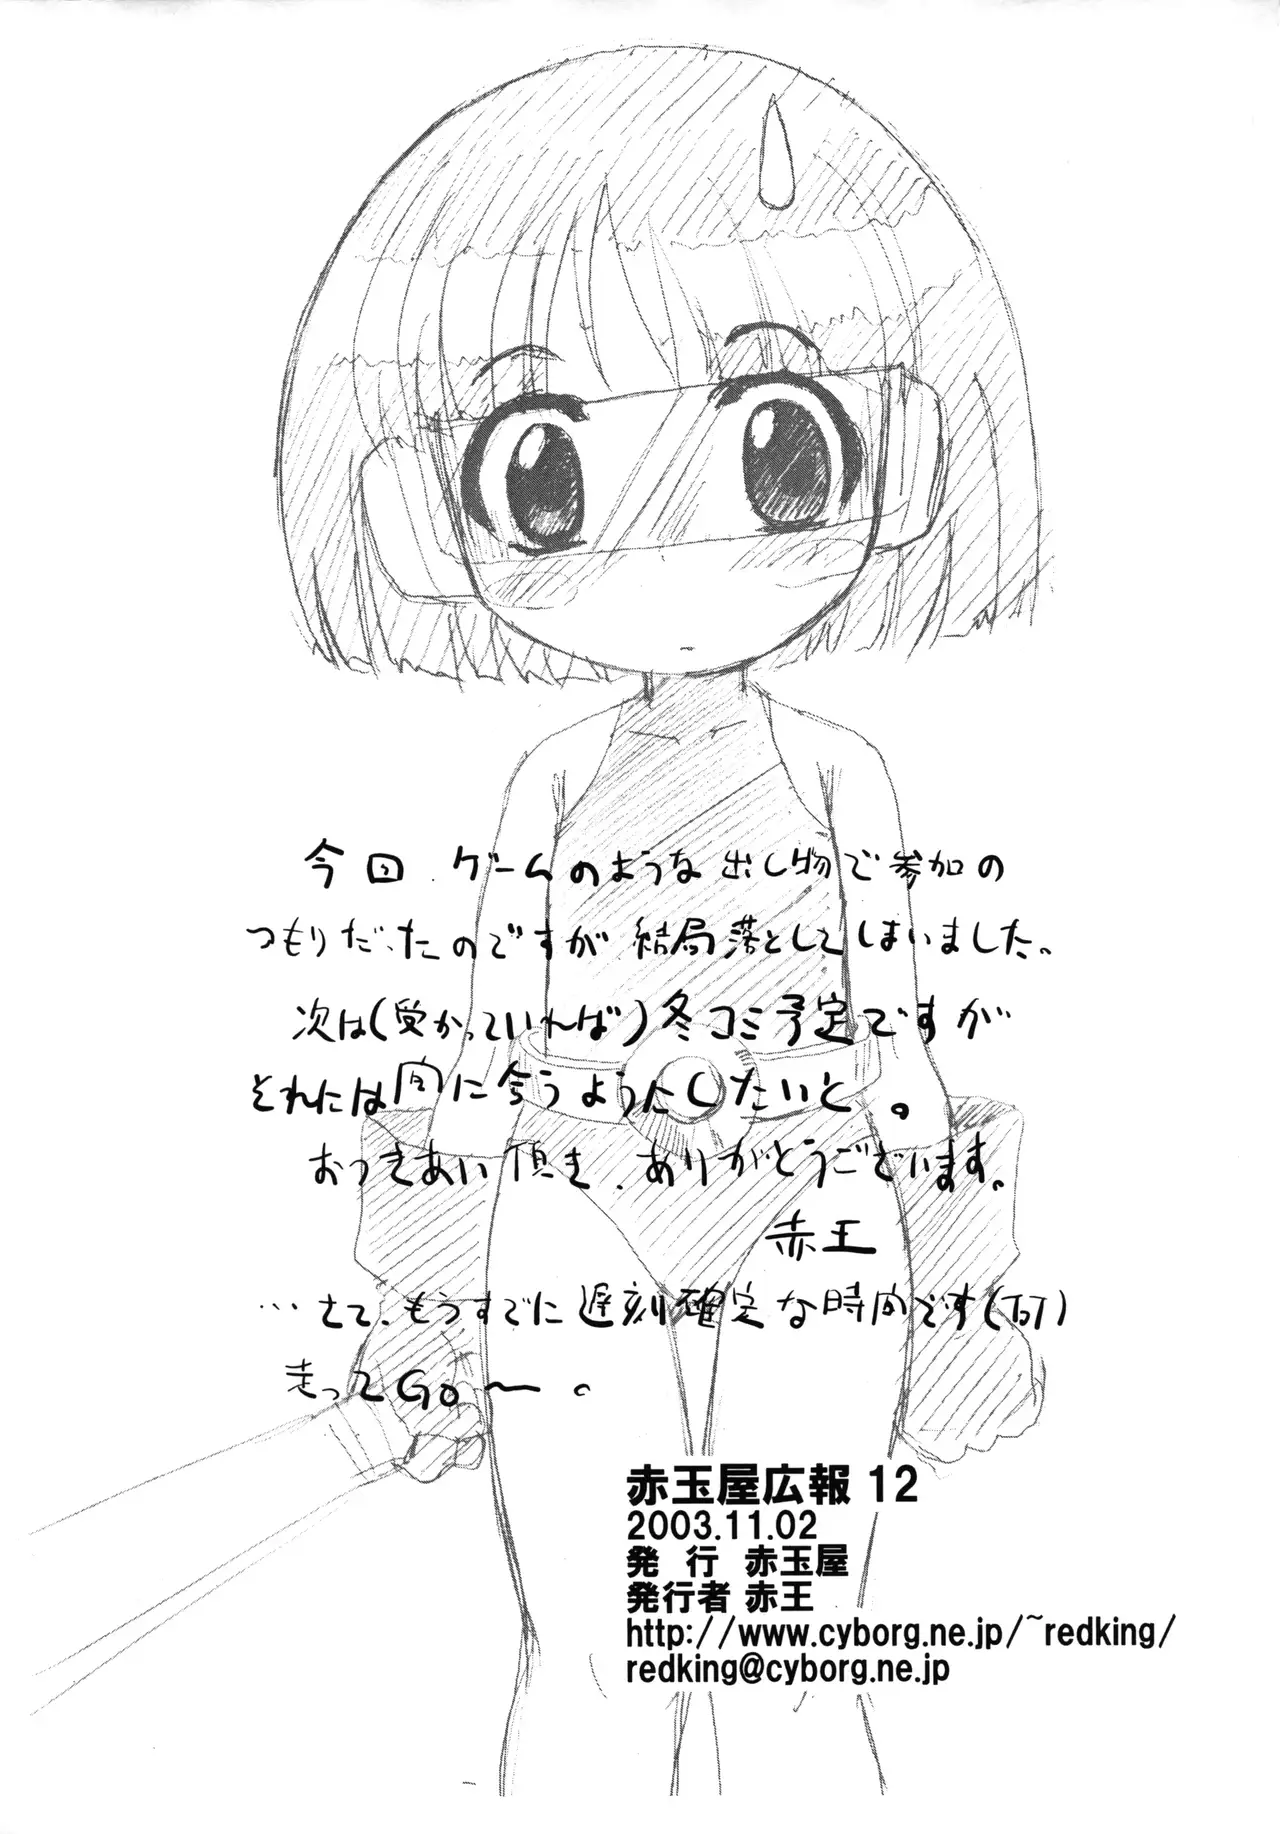 今回、ゲームのような出し物で参加の
つもりだったのですが結局落としてしまいました。
次は(受かっていれば)冬コミ予定ですが
それには間に合うようにしたいと。
おつきあい頂き、ありがとうございます。
赤王
…さて、もうすでに遅刻確定な時間です(汗)
走ってGo〜。
赤玉屋広報 12
2003.11.02
発 行 赤玉屋
発行者 赤王
http://www.cyborg.ne.jp/~redking/
redking@cyborg.ne.jp